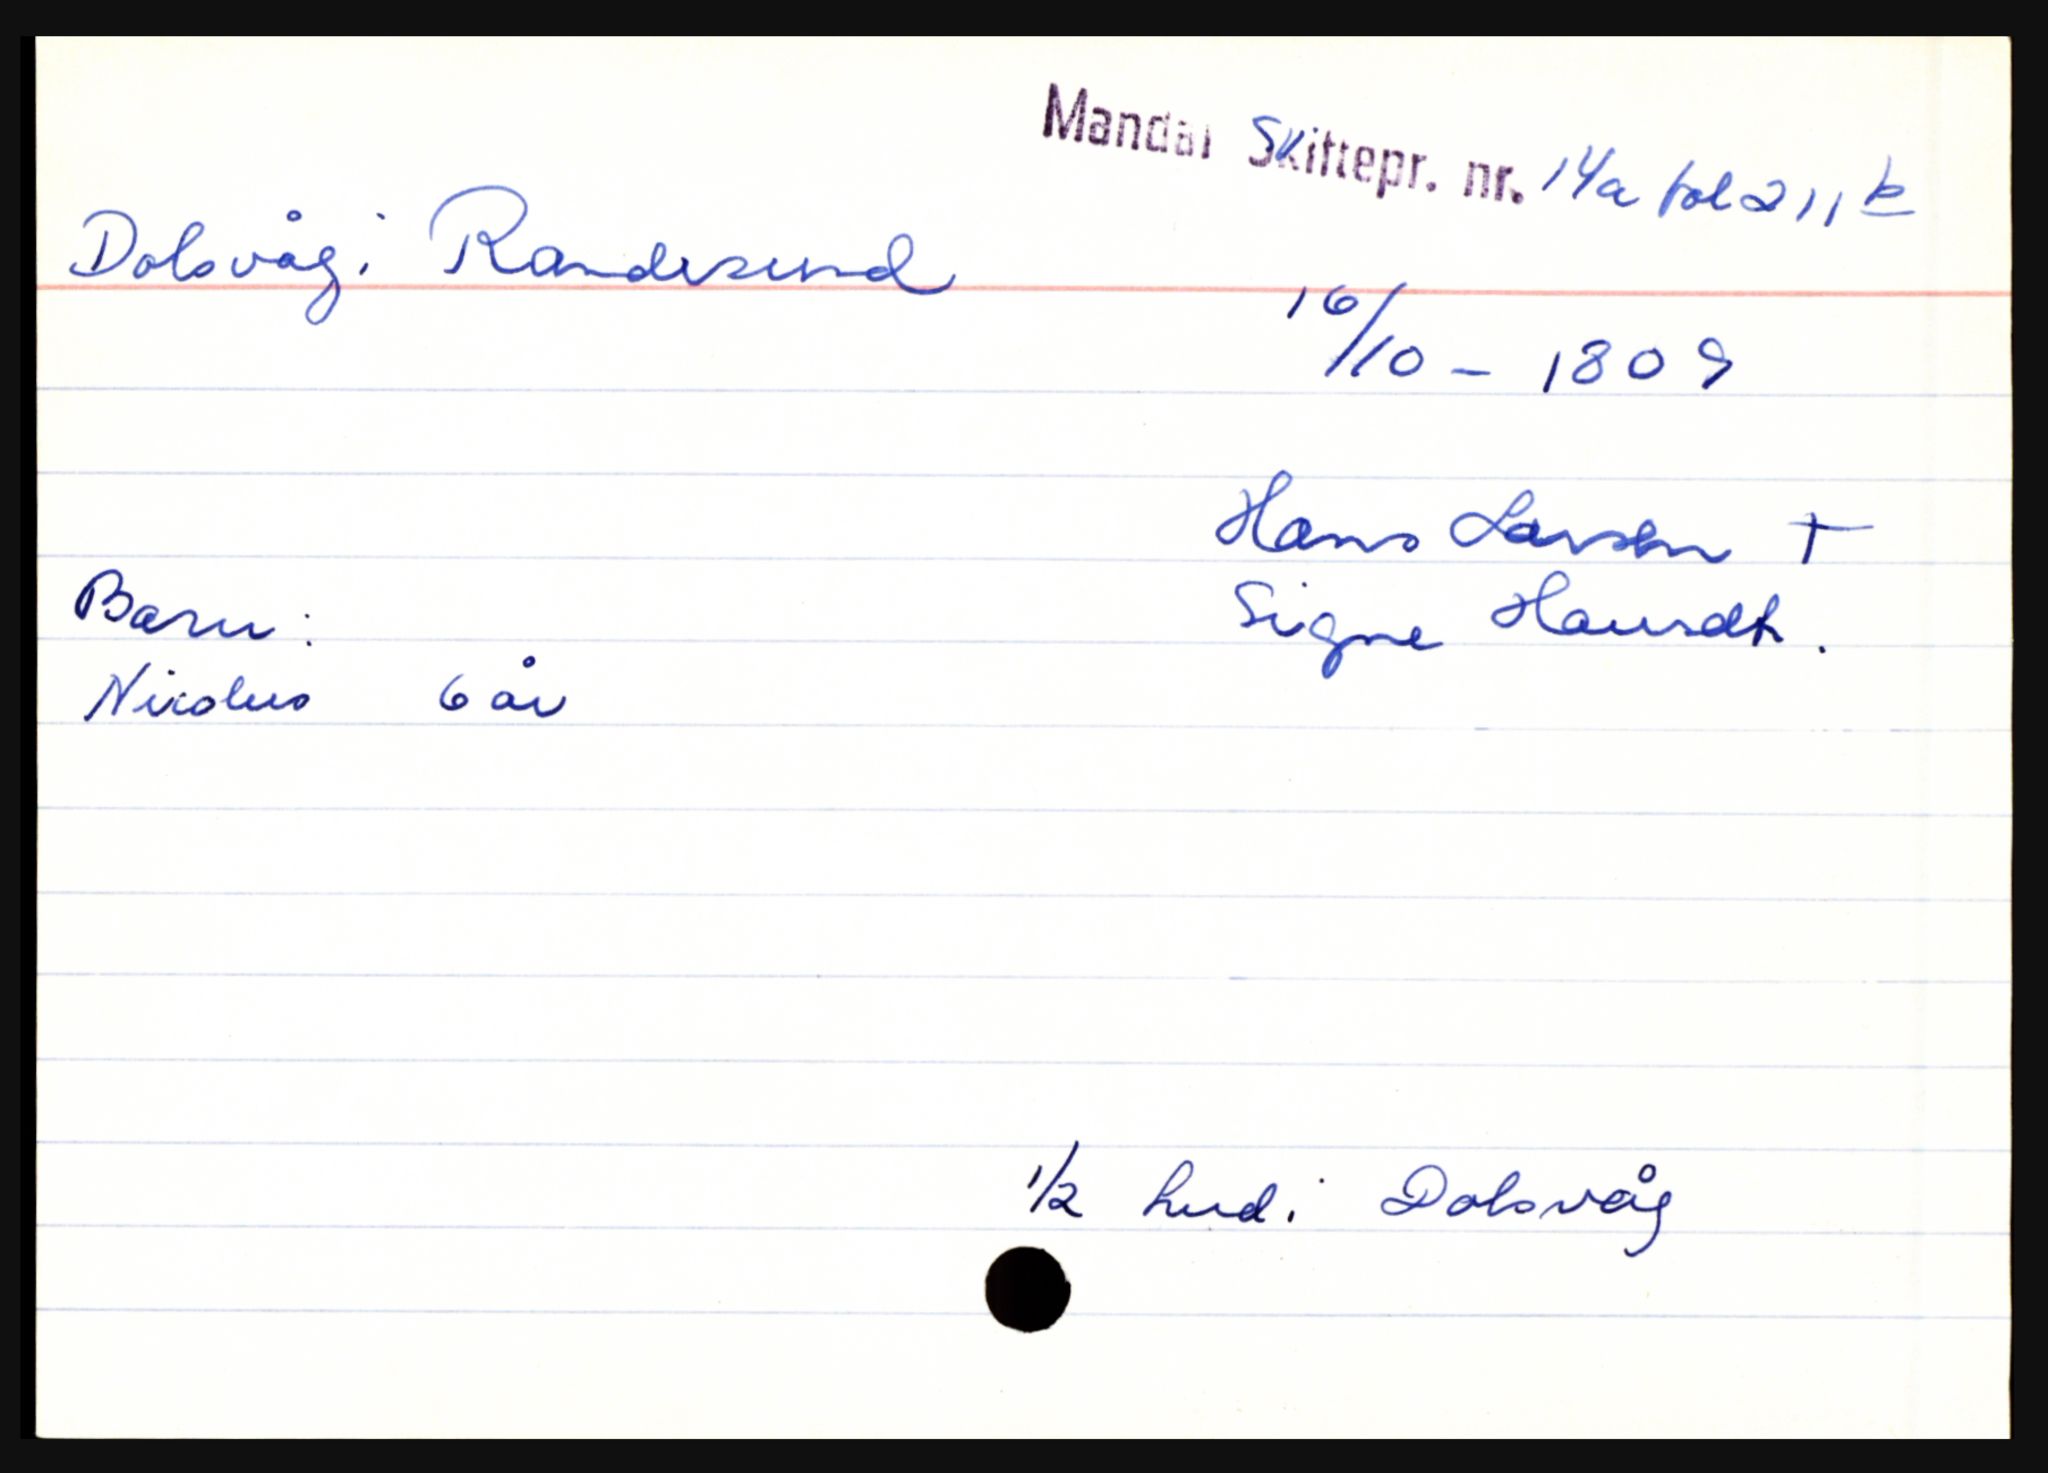 Mandal Skiftepr. nr. 14a fol 211 b
Dolsvåg i Randesund
16/10 - 1809
Hans Larsen †
Signe Hansdt.
Barn:
Nicolus 6 år
1/2 hud i Dolsvåg